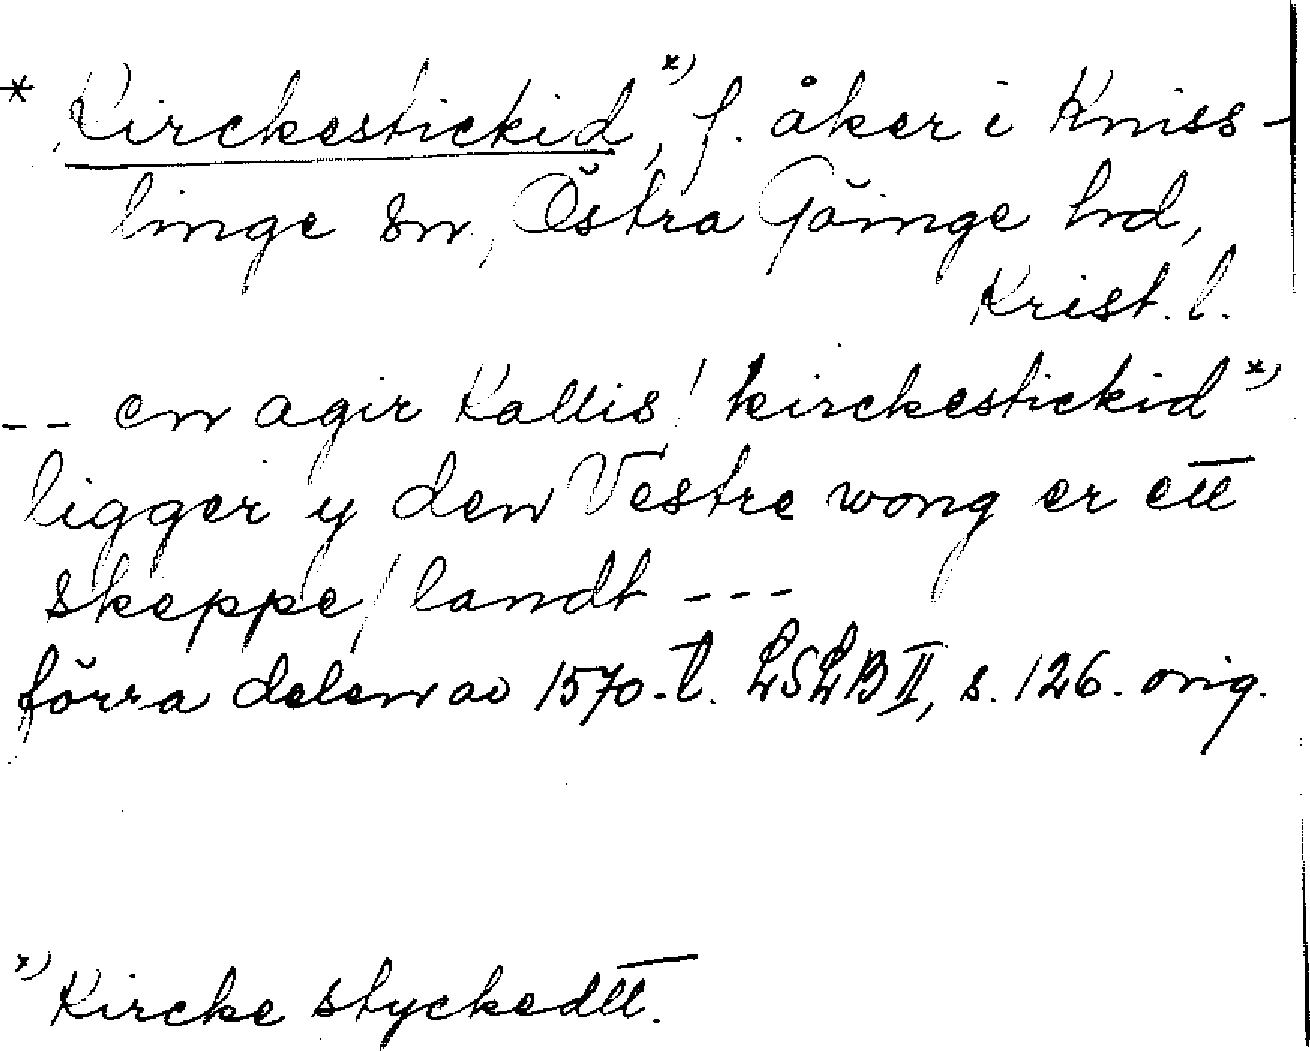 * Kirckestickid, *) f. åker i Kniss-
linge sn, Östra Göinge hd,
Krist. l.
-- en agir Kallis! kirckestickid *)
ligger y den Vestre wong er ett
skeppe/landt ---
förra delen av 1570-t. LSLB II, s. 126. orig.
*) Kircke styckedtt.